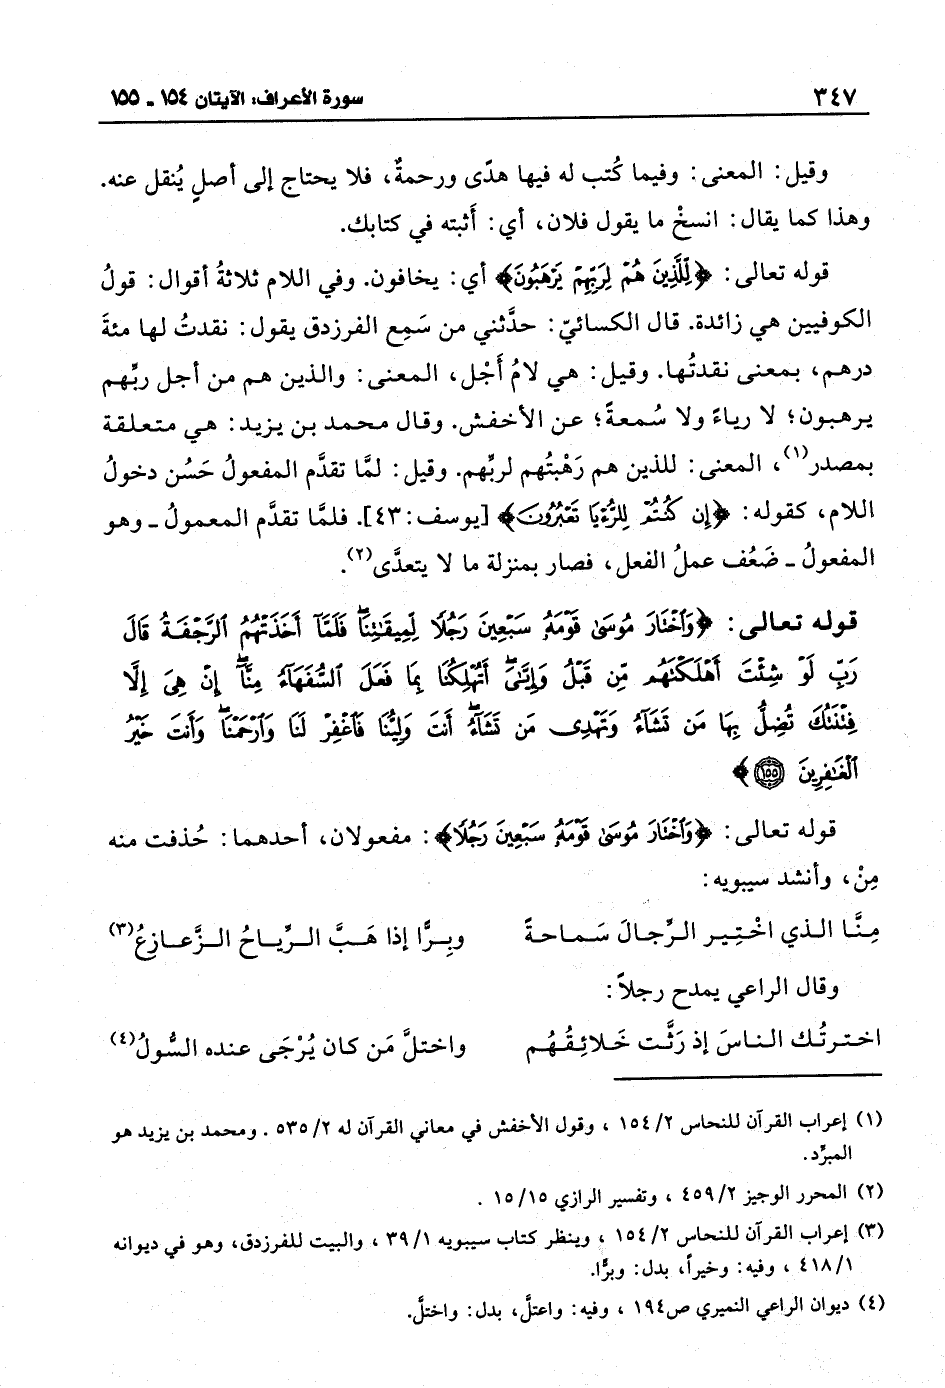 ٣٤٧ سورة الأعراف: الآيتان ١٥٤ ـ ١٥٥
وقيل: المعنى: وفيما كُتب له فيها هدًى ورحمةٌ، فلا يحتاج إلى أصلٍ يُنقل عنه.
وهذا كما يقال: انسخْ ما يقول فلان، أي: أَثبته في كتابك.
قوله تعالى: ﴿لِلَّذِينَ هُمْ لِرَبِّهِمْ يَرْهَبُونَ﴾ أي: يخافون. وفي اللام ثلاثةُ أقوال: قولُ
الكوفيين هي زائدة. قال الكسائيّ: حدَّثني من سَمِع الفرزدق يقول: نقدتُ لها مئةَ
درهم، بمعنى نقدتُها. وقيل: هي لامُ أَجْل، المعنى: والذين هم من أجل ربِّهم
يرهبون؛ لا رياءً ولا سُمعةً؛ عن الأخفش. وقال محمد بن يزيد: هي متعلقة
بمصدر(١)، المعنى: للذين هم رَهْبتُهم لربِّهم. وقيل: لمَّا تقدَّم المفعولُ حَسُن دخولُ
اللام، كقوله: ﴿إِن كُنتُمْ لِلرُّءْيَا تَعْبُرُونَ﴾ [يوسف: ٤٣]. فلمَّا تقدَّم المعمولُ ـ وهو
المفعولُ ـ ضَعُف عملُ الفعل، فصار بمنزلة ما لا يتعدَّى(٢).
قوله تعالى: ﴿وَٱخْتَارَ مُوسَىٰ قَوْمَهُۥ سَبْعِينَ رَجُلًا لِّمِيقَٰتِنَا ۖ فَلَمَّآ أَخَذَتْهُمُ ٱلرَّجْفَةُ قَالَ
رَبِّ لَوْ شِئْتَ أَهْلَكْتَهُم مِّن قَبْلُ وَإِيَّٰىَ ۖ أَتُهْلِكُنَا بِمَا فَعَلَ ٱلسُّفَهَآءُ مِنَّآ ۖ إِنْ هِىَ إِلَّا
فِتْنَتُكَ تُضِلُّ بِهَا مَن تَشَآءُ وَتَهْدِى مَن تَشَآءُ ۖ أَنتَ وَلِيُّنَا فَٱغْفِرْ لَنَا وَٱرْحَمْنَا ۖ وَأَنتَ خَيْرُ
ٱلْغَٰفِرِينَ ١٥٥﴾
قوله تعالى: ﴿وَٱخْتَارَ مُوسَىٰ قَوْمَهُۥ سَبْعِينَ رَجُلًا﴾: مفعولان، أحدهما: حُذفت منه
مِنْ، وأنشد سيبويه:
مِنَّا الذي اخْتِير الرِّجالَ سَماحةً وبِرًّا إذا هَبَّ الرِّياحُ الزَّعازِعُ(٣)
وقال الراعي يمدح رجلاً:
اخترتُك الناسَ إذ رَثَّت خَلائِقُهُم واختلَّ مَن كان يُرْجَى عنده السُّولُ(٤)
(١) إعراب القرآن للنحاس ٢/ ١٥٤ ، وقول الأخفش في معاني القرآن له ٢/ ٥٣٥ . ومحمد بن يزيد هو
المبرِّد.
(٢) المحرر الوجيز ٢/ ٤٥٩ ، وتفسير الرازي ١٥/ ١٥ .
(٣) إعراب القرآن للنحاس ٢/ ١٥٤ ، وينظر كتاب سيبويه ١/ ٣٩ ، والبيت للفرزدق، وهو في ديوانه
١/ ٤١٨ ، وفيه: وخيراً، بدل: وبرًّا.
(٤) ديوان الراعي النميري ص١٩٤ ، وفيه: واعتلَّ، بدل: واختلَّ.